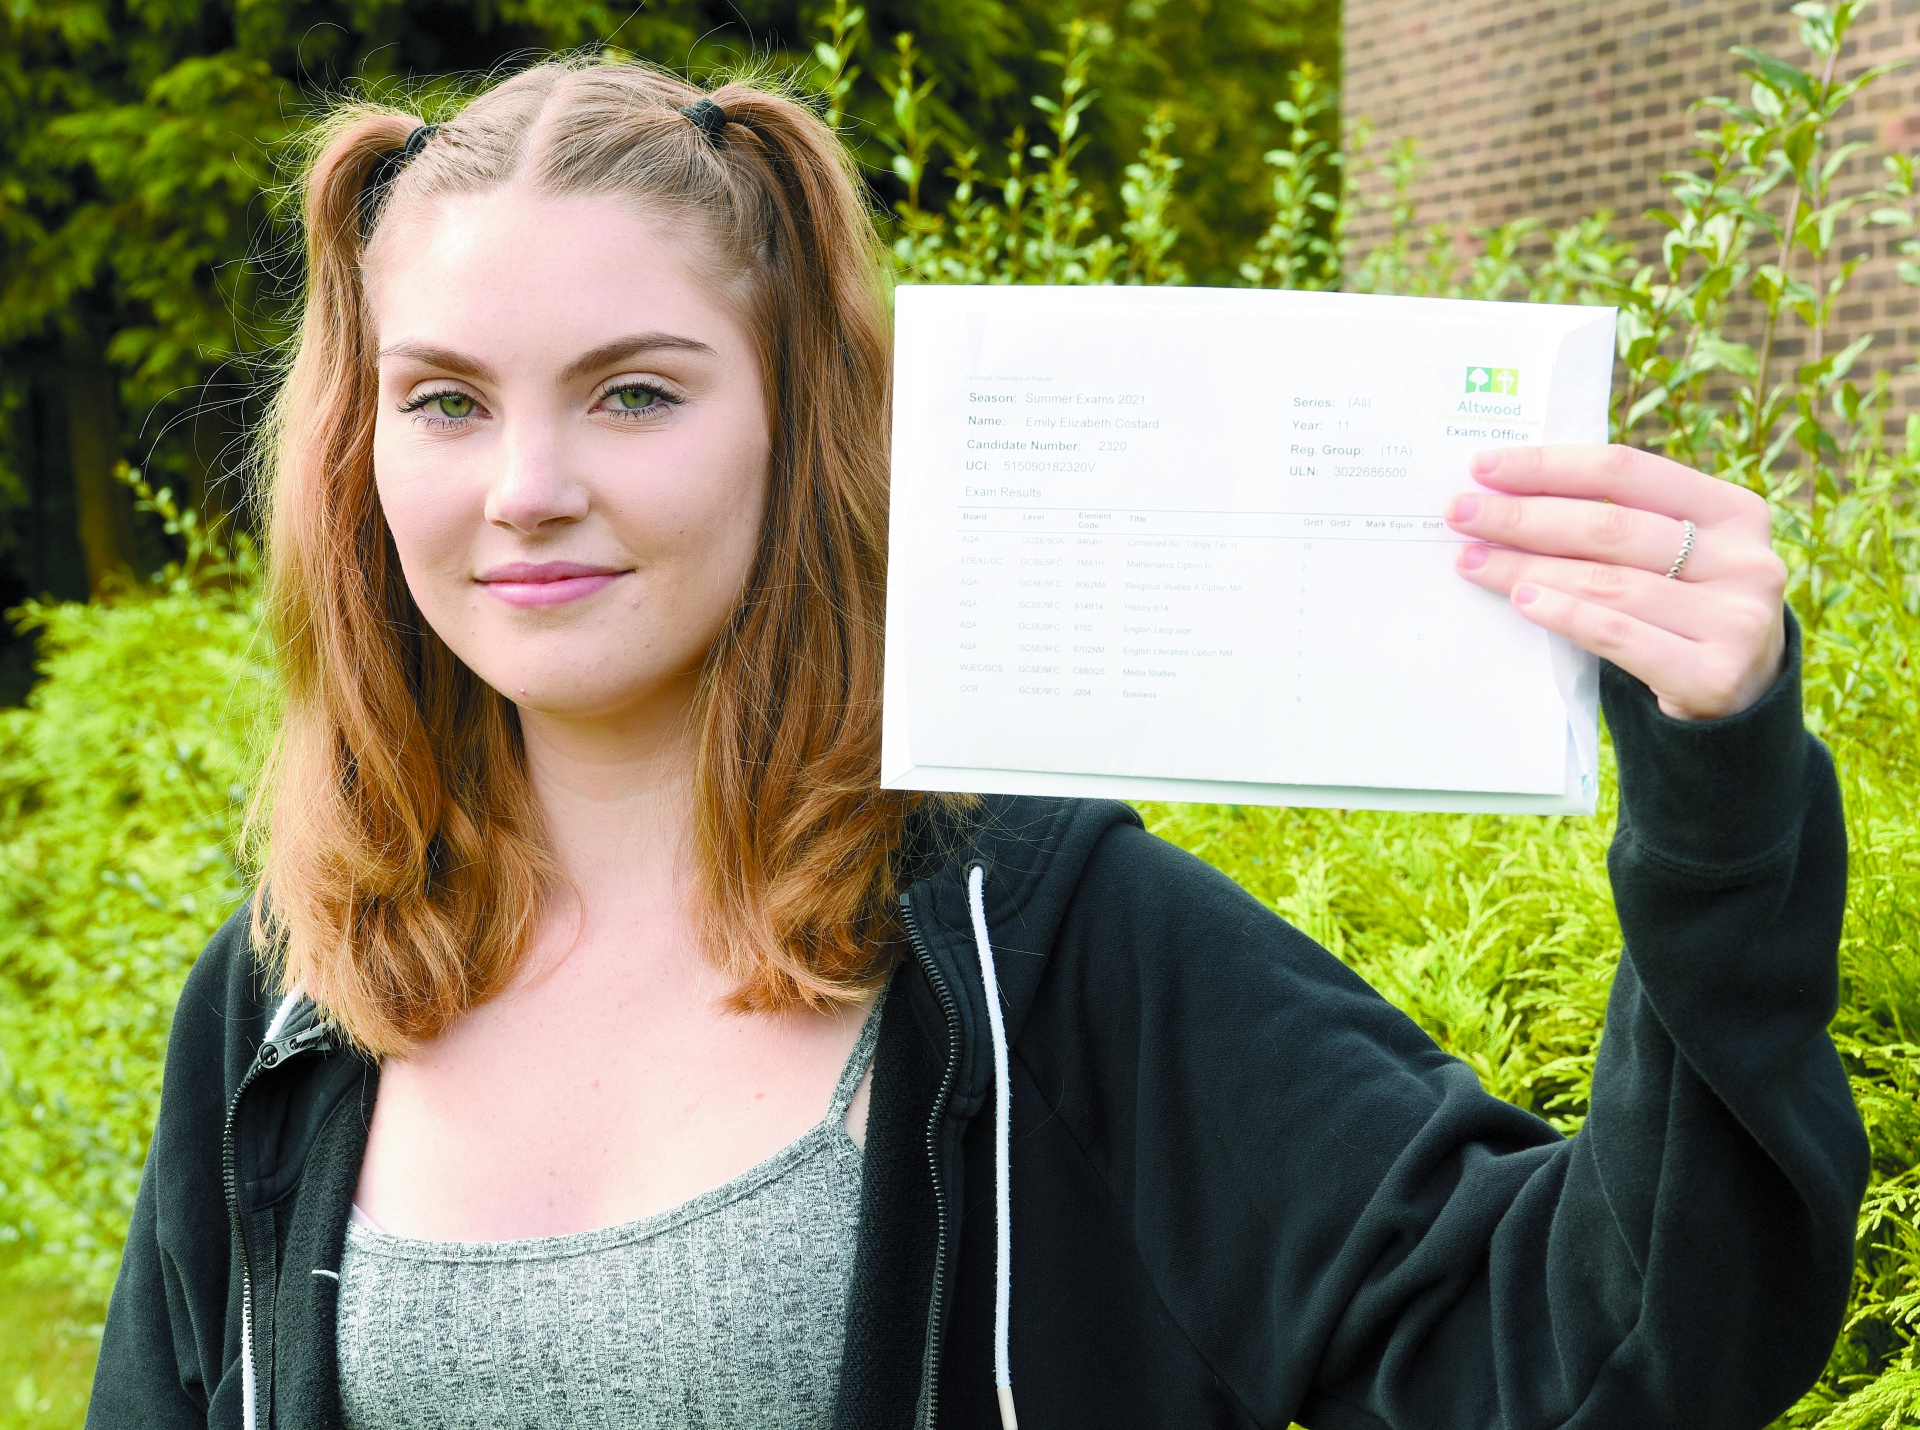 Candidate Statement of Results
Season: Summer Exams 2021
Series: (All)
Name: Emily Elizabeth Costard
Year: 11
Candidate Number: 2320
Reg. Group: (11A)
UCI: 515090182320V
ULN: 3022686500
Altwood
Church of England School
Exams Office
Exam Results
Board Level Element Code Title Grd1 Grd2 Mark Equiv End1
AQA GCSE/9DA 8464H Combined Sci. Trilogy Tier H 76
EDEXL/GC GCSE/9FC 1MA1H Mathematics Option H 7
AQA GCSE/9FC 8062MA Religious Studies A Option MA
AQA GCSE/9FC 814B14 History B14
AQA GCSE/9FC 8700 English Language 7 D
AQA GCSE/9FC 8702NM English Literature Option NM 7
WJEC/GCS GCSE/9FC C680QS Media Studies 7
OCR GCSE/9FC J204 Business